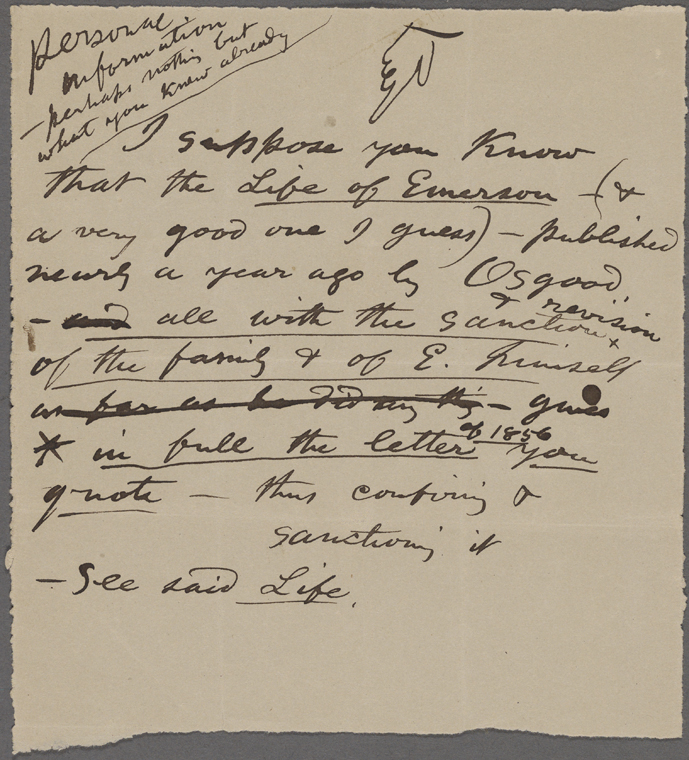 Personal
information
- perhaps nothing but
what you know already
I suppose you know
that the Life of Emerson - (&
a very good one I guess) - published
nearly a year ago by Osgood
- and all with the sanction & revision
of the family & of E. himself
as far as he did any thing - gives
* in full the letter of 1856 you
quote - thus confirming &
sanctioning it
- See said Life.